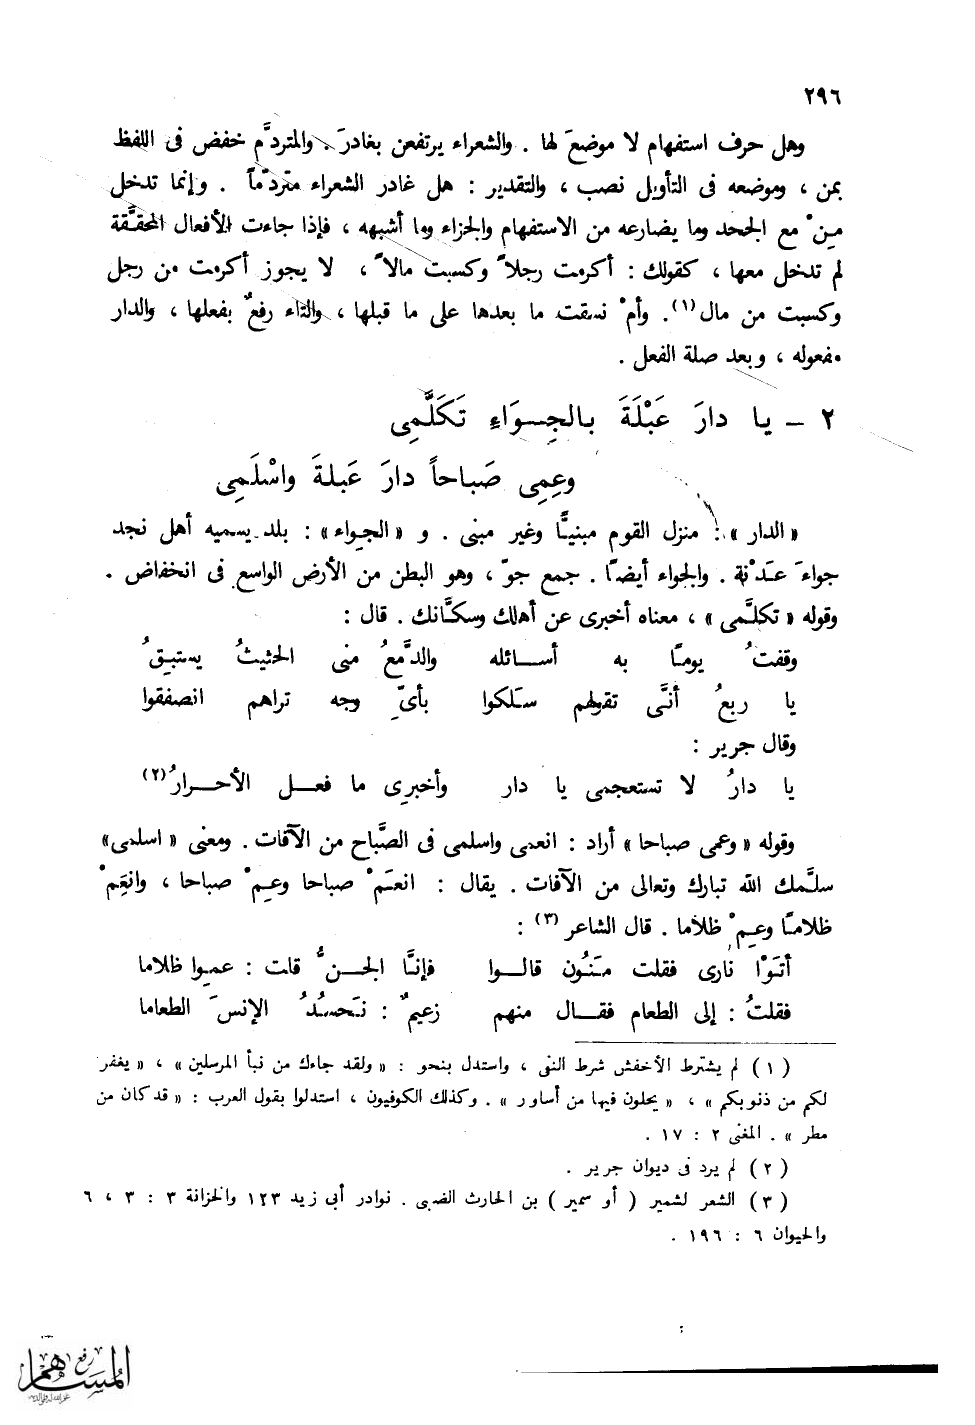 ٢٩٦
وهل حرف استفهام لا موضعَ لها . والشعراء يرتفعن بغادرَ . والمتردَّم خفض فى اللفظ
بمن ، وموضعه فى التأويل نصب ، والتقدير : هل غادر الشعراء متردّماً . وإنما تدخل
مِنْ مع الجحد وما يضارعه من الاستفهام والجزاء وما أشبهه ، فإذا جاءت الأفعال المحقَّقة
لم تدخل معها ، كقولك : أكرمت رجلاً وكسبت مالاً ، لا يجوز أكرمت من رجل
وكسبت من مال(١). وأمْ نسقت ما بعدها على ما قبلها ، والتاء رفعٌ بفعلها ، والدار
مفعوله ، وبعد صلة الفعل .
٢ – يا دارَ عَبْلَةَ بالجِوَاءِ تَكَلَّمِى
وعِمِى صَباحاً دارَ عَبلةَ واسْلَمِى
« الدار » : منزل القوم مبنيًّا وغير مبنى . و « الجِواء » : بلد يسميه أهل نجد
جواءَ عَدْنة . والجواء أيضًا . جمع جوّ ، وهو البطن من الأرض الواسع فى انخفاض .
وقوله « تكلَّمى » ، معناه أخبرى عن أهلك وسكَّانك . قال :
وقفتُ يومًا به أسائله والدَّمعُ منى الحثيثُ يستبِقُ
يا ربعُ أنَّى تقولهم سَلكوا بأىِّ وجه تراهم انصفقوا
وقال جرير :
يا دارُ لا تستعجمى يا دار وأخبرِى ما فعل الأحرارُ(٢)
وقوله « وعمى صباحا » أراد : انعمى واسلمى فى الصَّباح من الآفات . ومعنى « اسلمى »
سلَّمك الله تبارك وتعالى من الآفات . يقال : انعَمْ صباحا وعِمْ صباحا ، وانعِمْ
ظلامًا وعِمْ ظلاما . قال الشاعر (٣) :
أتَوْا نارى فقلت مَنُون قالوا فإنَّا الجنُّ قلت : عموا ظلاما
فقلتُ : إلى الطعام فقال منهم زعيمٌ : نَحسُدُ الإنسَ الطعاما
(١) لم يشترط الأخفش شرط النفى ، واستدل بنحو : « ولقد جاءك من نبأ المرسلين » ، « يغفر
لكم من ذنوبكم » ، « يحلون فيها من أساور » . وكذلك الكوفيون ، استدلوا بقول العرب : « قد كان من
مطر » . المغنى ٢ : ١٧ .
(٢) لم يرد فى ديوان جرير .
(٣) الشعر لشمير ( أو سمير ) بن الحارث الضبى . نوادر أبى زيد ١٢٣ والخزانة ٣ : ٣ ، ٦
والحيوان ٦ : ١٩٦ .
رفع
المساهم